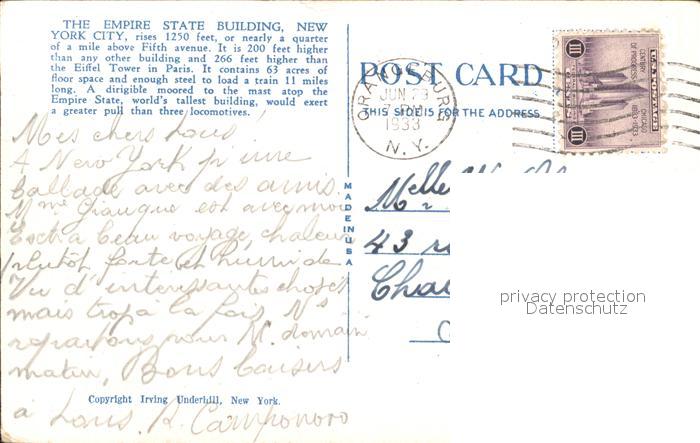 THE EMPIRE STATE BUILDING, NEW
YORK CITY, rises 1250 feet, or nearly a quarter
of a mile above Fifth avenue. It is 200 feet higher
than any other building and 266 feet higher than
the Eiffel Tower in Paris. It contains 63 acres of
floor space and enough steel to load a train 11 miles
long. A dirigible moored to the mast atop the
Empire State, world's tallest building, would exert
a greater pull than three locomotives.
Mes chers
A New York pr une
ballade avec des amis.
Mme Giauque est avec moi
beau voyage chaleur
plutôt forte et humide
Vu d'interessantes choses
mais trop à la fois Ns
repartons pour M. demain
matin, Bons baisers
à Tous. R. Camponovo
Copyright Irving Underhill, New York.
MADE IN USA
POST CARD
THIS SIDE IS FOR THE ADDRESS
ORANGEBURG
JUN 23
1933
N.Y.
U.S. POSTAGE
CENTURY OF PROGRESS
CHICAGO
1833-1933
III
III
Melle
43
privacy protection
Datenschutz